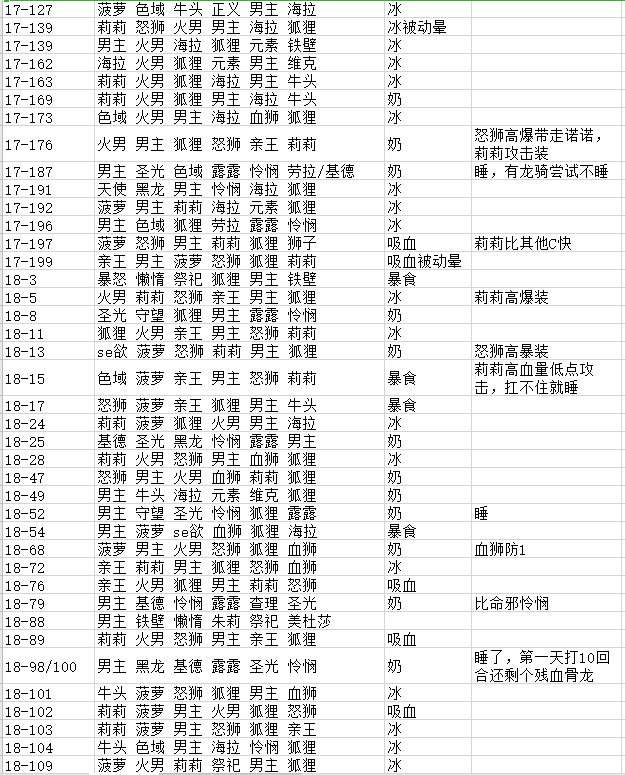 17-127 菠萝 色域 牛头 正义 男主 海拉 冰
17-139 莉莉 怒狮 火男 男主 海拉 狐狸 冰被动晕
17-139 男主 火男 海拉 狐狸 元素 铁壁 冰
17-162 海拉 火男 狐狸 元素 男主 维克 冰
17-163 莉莉 火男 狐狸 海拉 男主 牛头 冰
17-169 莉莉 火男 狐狸 男主 海拉 牛头 奶
17-173 色域 火男 男主 海拉 血狮 狐狸 冰
17-176 火男 男主 狐狸 怒狮 亲王 莉莉 奶 怒狮高爆带走诺诺，
莉莉攻击装
17-187 男主 圣光 色域 露露 怜悯 劳拉/基德 奶 睡，有龙骑尝试不睡
17-191 天使 黑龙 男主 怜悯 海拉 狐狸 冰
17-192 菠萝 男主 莉莉 海拉 元素 狐狸 冰
17-196 男主 色域 狐狸 劳拉 露露 怜悯 冰
17-197 菠萝 怒狮 男主 莉莉 狐狸 狮子 吸血 莉莉比其他C快
17-199 亲王 男主 菠萝 怒狮 狐狸 莉莉 吸血被动晕
18-3 暴怒 懒惰 祭祀 狐狸 男主 铁壁 暴食
18-5 火男 莉莉 怒狮 亲王 男主 狐狸 冰 莉莉高爆装
18-8 圣光 守望 狐狸 男主 露露 怜悯 奶
18-11 狐狸 火男 亲王 男主 怒狮 莉莉 冰
18-13 se欲 菠萝 怒狮 莉莉 男主 狐狸 奶 怒狮高暴装
18-15 色域 菠萝 亲王 男主 怒狮 莉莉 暴食 莉莉高血量低点攻
击，扛不住就睡
18-17 怒狮 菠萝 亲王 狐狸 男主 牛头 暴食
18-24 莉莉 菠萝 狐狸 火男 男主 海拉 冰
18-25 基德 圣光 黑龙 怜悯 露露 男主 奶
18-28 莉莉 火男 怒狮 男主 血狮 狐狸 冰
18-47 怒狮 男主 火男 血狮 莉莉 狐狸 奶
18-49 男主 牛头 海拉 元素 维克 狐狸 奶
18-52 男主 守望 圣光 怜悯 狐狸 露露 奶 睡
18-54 男主 菠萝 se欲 血狮 狐狸 海拉 暴食
18-68 菠萝 男主 火男 怒狮 狐狸 血狮 奶 血狮防1
18-72 亲王 莉莉 男主 狐狸 怒狮 血狮 冰
18-76 亲王 火男 狐狸 男主 莉莉 怒狮 吸血
18-79 男主 基德 怜悯 露露 查理 圣光 奶 比命邪怜悯
18-88 男主 铁壁 懒惰 朱莉 祭祀 美杜莎
18-89 莉莉 火男 怒狮 男主 亲王 狐狸 吸血
18-98/100 男主 黑龙 基德 露露 圣光 怜悯 奶 睡了，第一天打10回
合还剩个残血骨龙
18-101 牛头 菠萝 怒狮 狐狸 男主 血狮 冰
18-102 莉莉 菠萝 男主 火男 狐狸 怒狮 吸血
18-103 莉莉 菠萝 男主 怒狮 狐狸 亲王 冰
18-104 牛头 色域 男主 海拉 怜悯 狐狸 冰
18-109 菠萝 火男 莉莉 祭祀 男主 狐狸 冰